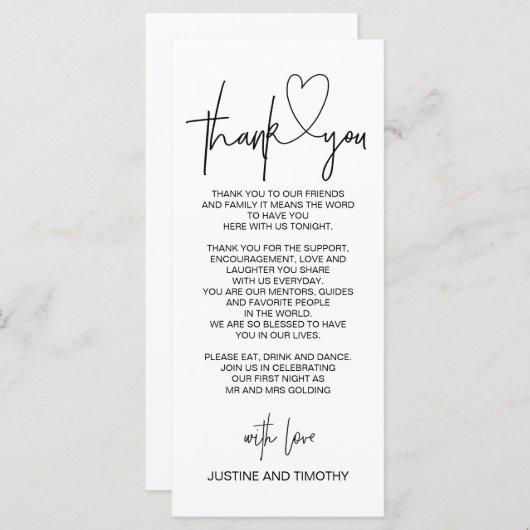 thank you
THANK YOU TO OUR FRIENDS
AND FAMILY IT MEANS THE WORD
TO HAVE YOU
HERE WITH US TONIGHT.
THANK YOU FOR THE SUPPORT,
ENCOURAGEMENT, LOVE AND
LAUGHTER YOU SHARE
WITH US EVERYDAY.
YOU ARE OUR MENTORS, GUIDES
AND FAVORITE PEOPLE
IN THE WORLD.
WE ARE SO BLESSED TO HAVE
YOU IN OUR LIVES.
PLEASE EAT, DRINK AND DANCE.
JOIN US IN CELEBRATING
OUR FIRST NIGHT AS
MR AND MRS GOLDING
with love
JUSTINE AND TIMOTHY